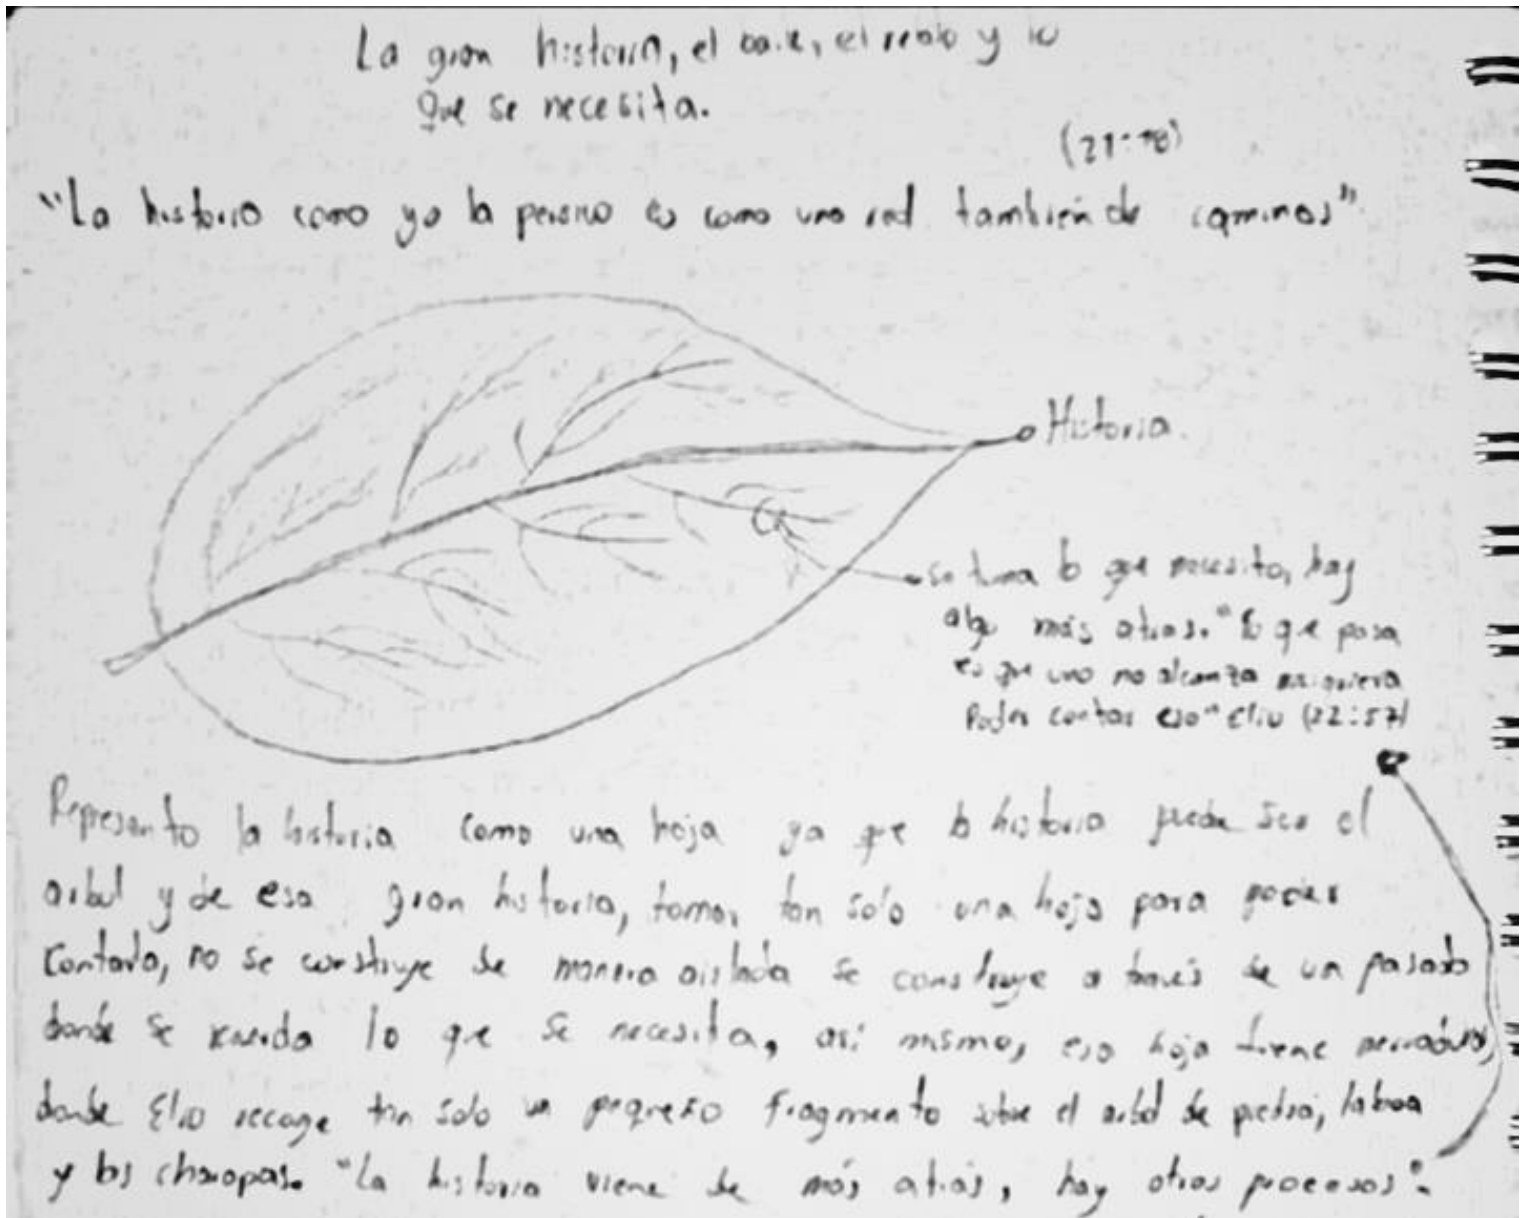 La gran historia, el baile, el relato y lo
que se necesita.
(21:18)
"La historia como yo la persivo es como una red también de caminos"
Historia.
Se toma lo que necesito, hay
algo más atras. "lo que pasa
es que uno no alcanza ni siquiera
Poder contar eso" Elio (22:57)
Represento la historia como una hoja ya que la historia puede ser el
arbol y de esa gran historia, tomar tan solo una hoja para poder
contarla, no se construye de manera aislada se construye a través de un pasado
donde se recuerda lo que se necesita, así mismo, esa hoja tiene
donde Elio recoge tan solo un pequeño fragmento sobre el arbol de piedra, la boa
y las charapas. "La historia viene de más atrás, hay otros procesos".